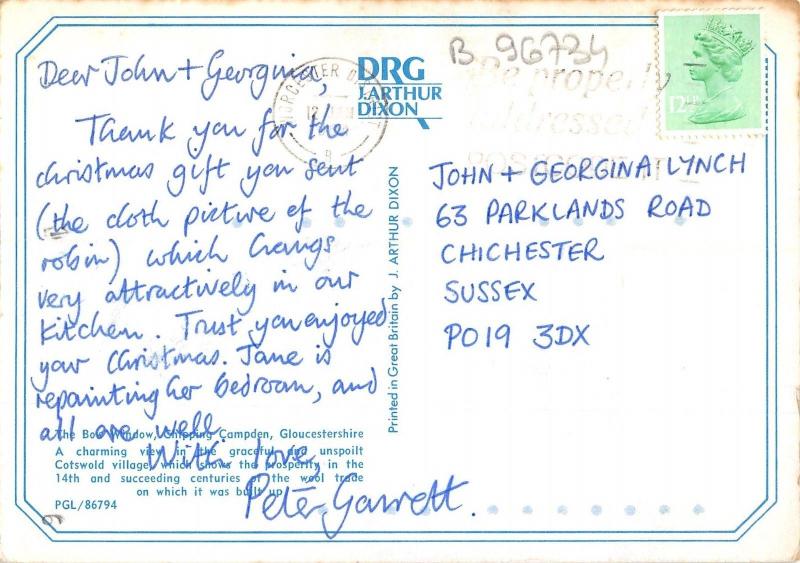 Dear John + Georgina,
Thank you for the
christmas gift you sent
(the cloth picture of the
robin) which hangs
very attractively in our
kitchen. Trust you enjoyed
your Christmas. Jane is
repainting her bedroom, and
all are well
With love,
Peter Garrett.
The Bow Window, Chipping Campden, Gloucestershire
A charming view in the graceful and unspoilt
Cotswold village, which shows the prosperity in the
14th and succeeding centuries of the wool trade
on which it was built up.
PGL/86794
DRG
J. ARTHUR
DIXON
Printed in Great Britain by J. ARTHUR DIXON
B 96734
Be properly
addressed
POSTCODE IT
12½P
JOHN + GEORGINA LYNCH
63 PARKLANDS ROAD
CHICHESTER
SUSSEX
PO19 3DX